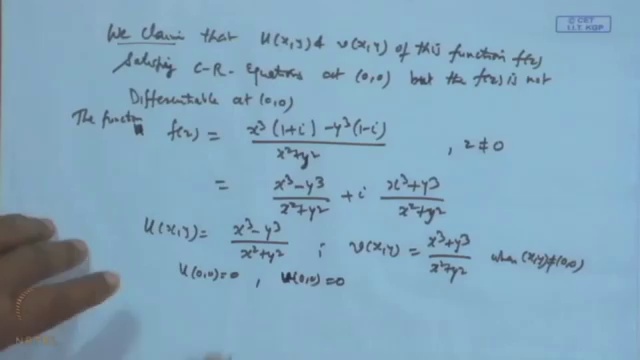 © CET
I.I.T. KGP
We claim that u(x,y) & v(x,y) of this function f(z)
Satisfy C-R- Equations at (0,0) but the f(z) is not
Differentiable at (0,0)
The function f(z) = x³(1+i) - y³(1-i) / x²+y² , z ≠ 0
= x³-y³ / x²+y² + i x³+y³ / x²+y²
u(x,y) = x³-y³ / x²+y² ; v(x,y) = x³+y³ / x²+y² when (x,y)≠(0,0)
u(0,0)=0 , v(0,0)=0